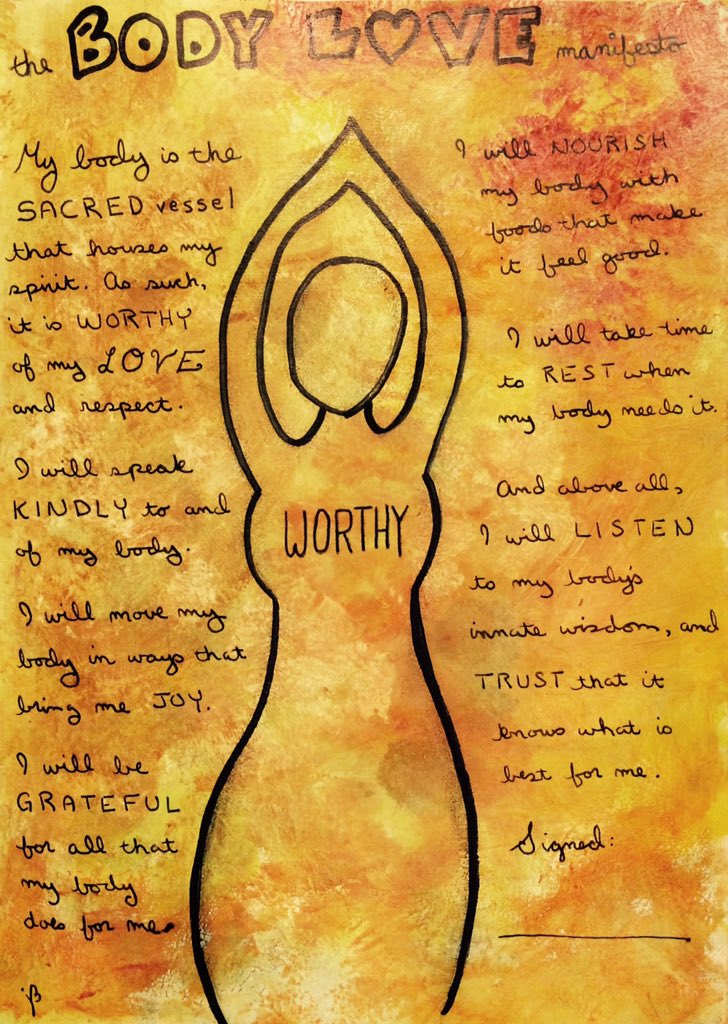 the BODY LOVE manifesto
My body is the
SACRED vessel
that houses my
spirit. As such,
it is WORTHY
of my LOVE
and respect.
I will speak
KINDLY to and
of my body.
I will move my
body in ways that
bring me JOY.
I will be
GRATEFUL
for all that
my body
does for me.
WORTHY
I will NOURISH
my body with
foods that make
it feel good.
I will take time
to REST when
my body needs it.
And above all,
I will LISTEN
to my body's
innate wisdom, and
TRUST that it
knows what is
best for me.
Signed: